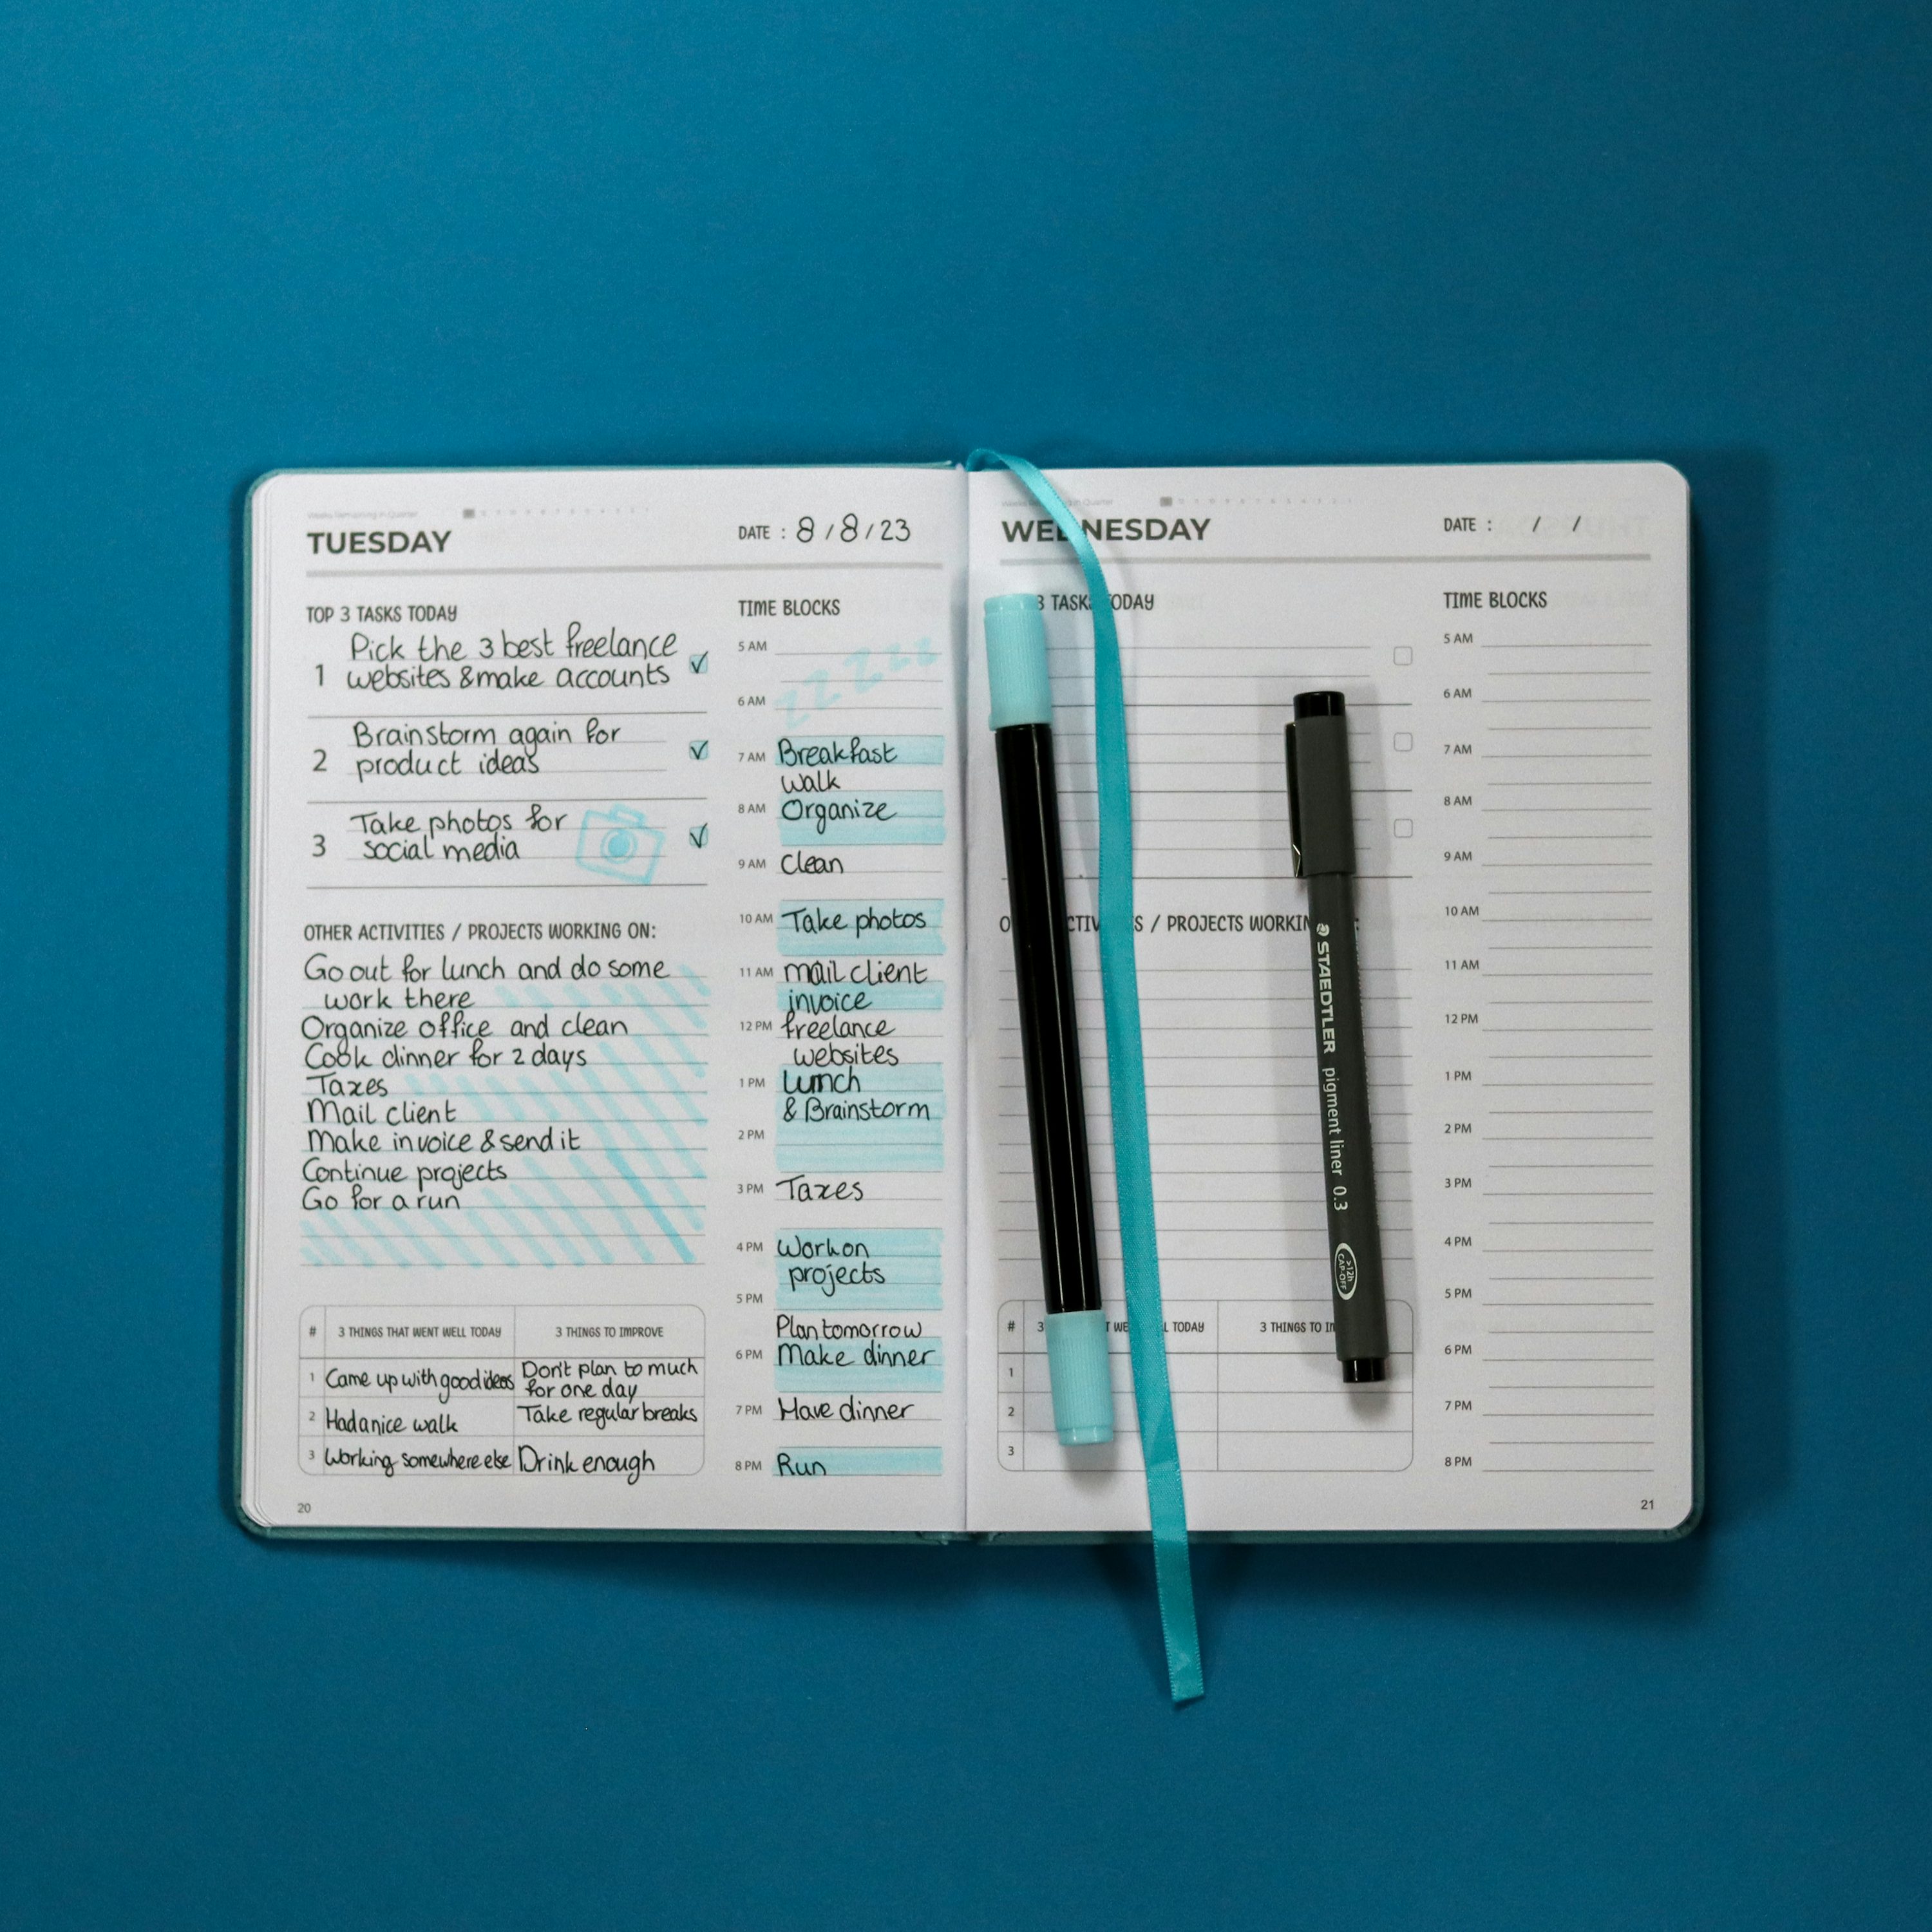 TUESDAY
DATE : 8/8/23
TOP 3 TASKS TODAY
1 Pick the 3 best freelance
websites & make accounts
2 Brainstorm again for
product ideas
3 Take photos for
social media
OTHER ACTIVITIES / PROJECTS WORKING ON:
Go out for lunch and do some
work there
Organize office and clean
Cook dinner for 2 days
Taxes
Mail client
Make invoice & send it
Continue projects
Go for a run
# 3 THINGS THAT WENT WELL TODAY 3 THINGS TO IMPROVE
1 Came up with good ideas Don't plan to much
for one day
2 Had a nice walk Take regular breaks
3 Working somewhere else Drink enough
20
TIME BLOCKS
5 AM zzzzzz
6 AM
7 AM Breakfast
walk
8 AM Organize
9 AM Clean
10 AM Take photos
11 AM mail client
invoice
12 PM freelance
websites
1 PM Lunch
& Brainstorm
2 PM
3 PM Taxes
4 PM Work on
projects
5 PM
Plan tomorrow
6 PM Make dinner
7 PM Have dinner
8 PM Run
WEDNESDAY
DATE : / /
3 TASKS TODAY
/ PROJECTS WORKING
# 3 WELL TODAY 3 THINGS TO
1
2
3
TIME BLOCKS
5 AM
6 AM
7 AM
8 AM
9 AM
10 AM
11 AM
12 PM
1 PM
2 PM
3 PM
4 PM
5 PM
6 PM
7 PM
8 PM
21
STAEDTLER pigment liner 0.3
>12h
CAP-OFF